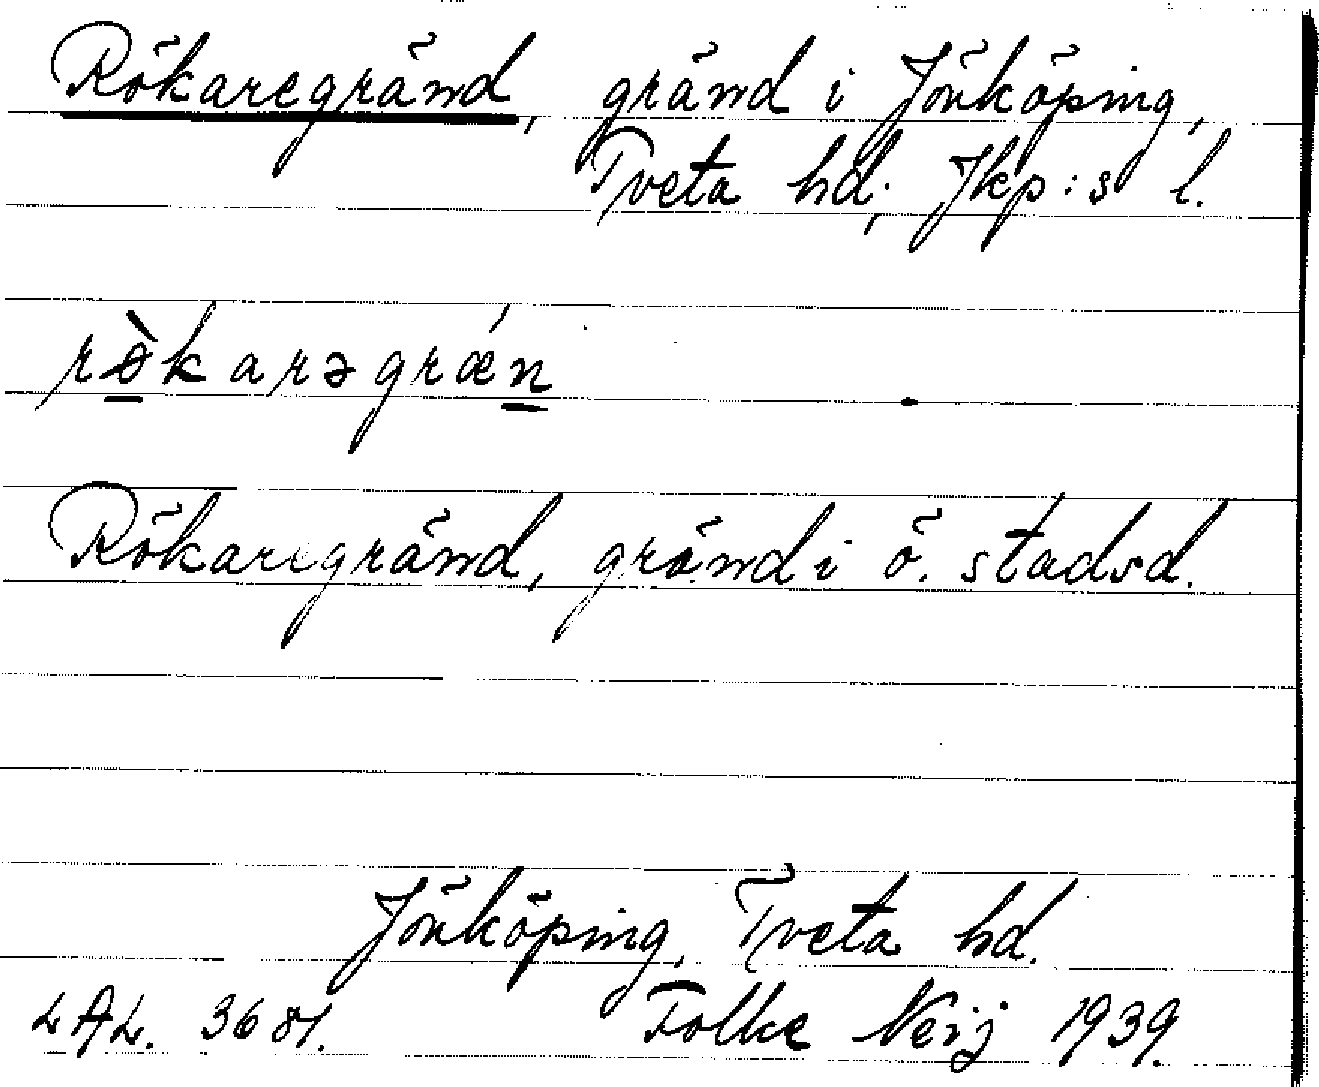 Rökaregränd, gränd i Jönköping,
Tveta hd, Jkp:s l.
rø̀karəgrǽn
Rökaregränd, gränd i ö. stadsd.
Jönköping, Tveta hd.
LAL. 3681. Folke Neij 1939.